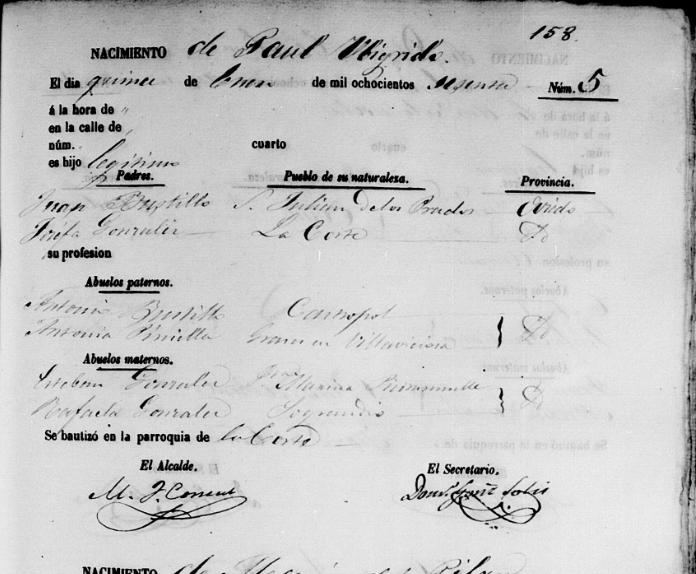 158.
NACIMIENTO de Paul
El dia quince de Enero de mil ochocientos sesenta Núm. 5
á la hora de "
en la calle de "
núm. cuarto
es hijo legitimo
Padres. Pueblo de su naturaleza. Provincia.
Juan Bustillo S. Julian de los Prados Oviedo
Josefa Gonzalez La Corte Do
su profesion
Abuelos paternos.
Antonio Bustillo Castropol
Antonia Piniella en Villaviciosa } Do
Abuelos maternos.
Esteban Gonzalez Marina
Rafaela Gonzalez Sograndio } Do
Se bautizó en la parroquia de la Corte
El Alcalde. El Secretario.
NACIMIENTO de